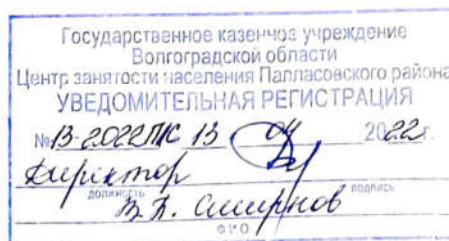 Государственное казенное учреждение
Волгоградской области
Центр занятости населения Палласовского района
УВЕДОМИТЕЛЬНАЯ РЕГИСТРАЦИЯ
№ 13-2022П/С 13 04 2022 г.
Директор
должность подпись
В.П. Смирнов
ФИО